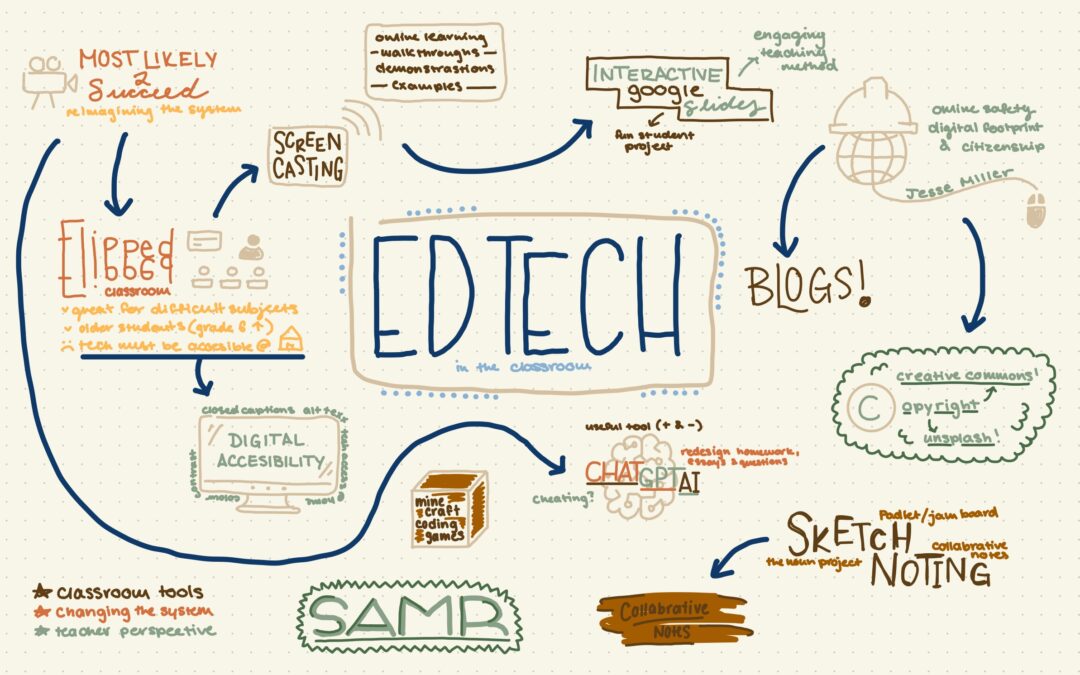 MOST LIKELY
2
Succeed
reimagining the system
online learning
walkthroughs
demonstrastions
examples
SCREEN
CASTING
INTERACTIVE
google
slides
engaging
teaching
method
fun student
project
online safety
digital footprint
& citizenship
Jesse Miller
Flipped
classroom
great for difficult subjects
older students (grade 6 ↑)
tech must be accesible @
EDTECH
in the classroom
BLOGS!
creative commons!
C opyright
unsplash!
closed captions alt text
tech access @
home
colour
contrast
DIGITAL
ACCESIBILITY
useful tool (+ & -)
redesign homework,
essays & questions
CHATGPT AI
cheating?
mine
craft
coding
games
SKETCH
NOTING
Padlet/jam board
collabrative
notes
the noun project
Collabrative
Notes
SAMR
★ classroom tools
★ changing the system
★ teacher perspective